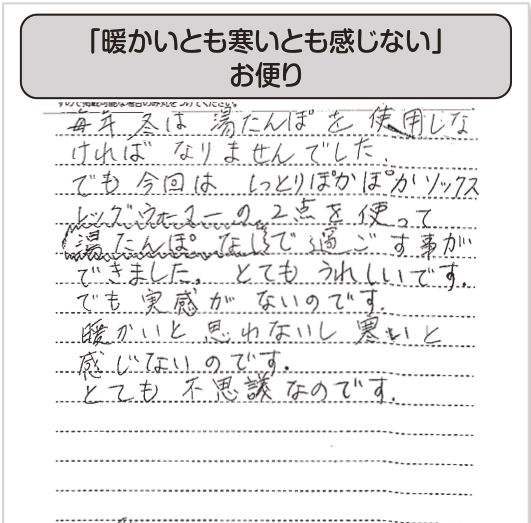 「暖かいとも寒いとも感じない」
お便り
すので掲載可能な場合のみ丸をつけてください。
毎年冬は 湯たんぽを使用しな
ければ なりませんでした。
でも今回は しっとりぽかぽかソックス
レッグウォーマーの2点を使って
湯たんぽなしで過ごす事が
できました。とてもうれしいです。
でも実感がないのです。
暖かいと思わないし寒いと
感じないのです。
とても不思議なのです。